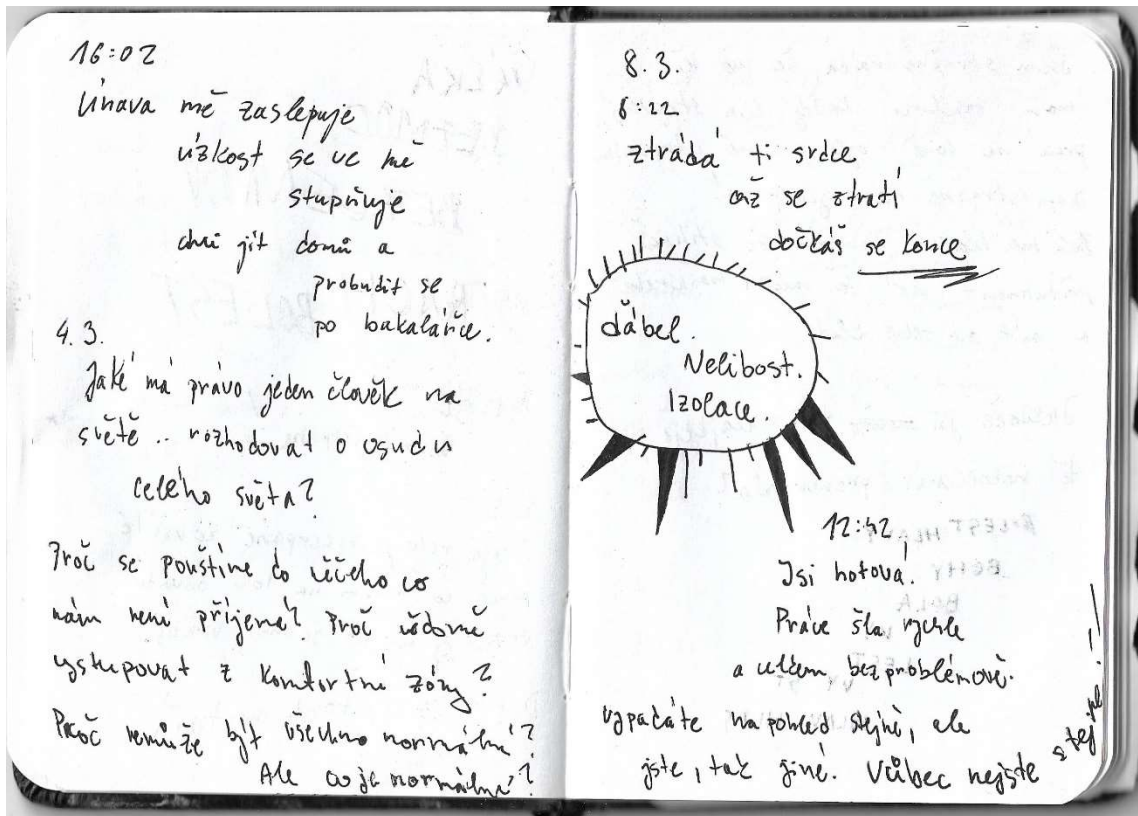 16:02
Únava mě zaslepuje
úzkost se ve mě
stupňuje
chci jít domů a
probudit se
po bakalářce.
4.3.
Jaké má právo jeden člověk na
světě .. rozhodovat o osudu
celého světa?
Proč se pouštíme do něčeho co
nám není příjemé? Proč vědomě
vystupovat z komfortní zóny?
Proč nemůže být všechno normální?
Ale co je normální?
8.3.
8:22
ztrádá ti srdce
až se ztratí
dočkáš se konce
ďábel.
Nelibost.
Izolace.
12:42
Jsi hotová.
Práce šla rychle
a celkem bezproblémově.
vypadáte na pohled stejně, ale
jste, tak jiné. Vůbec nejste stejné!